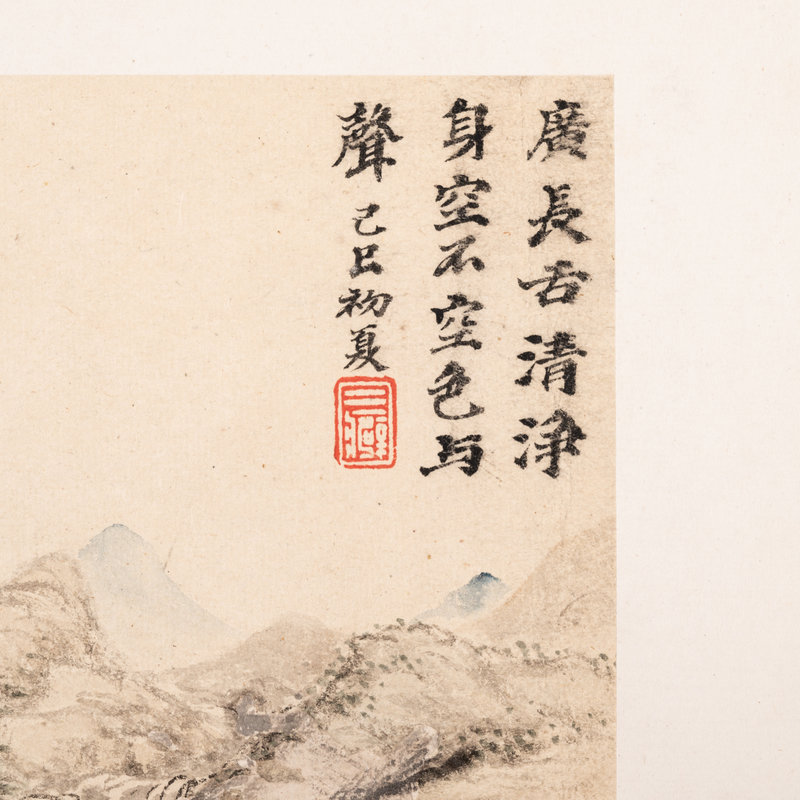 廣長舌清淨
身空不空色与
聲
己巳初夏
三癖